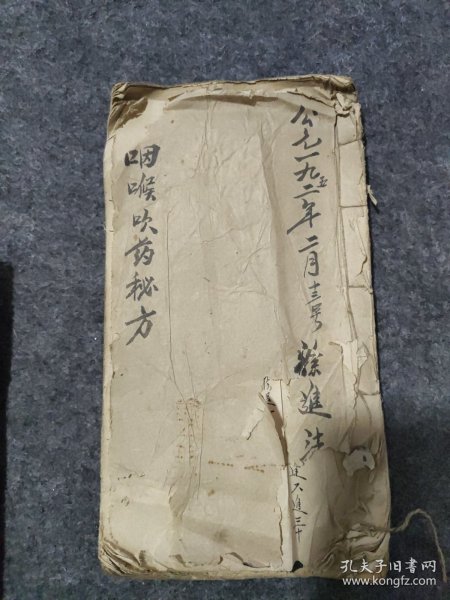 公元一九五二年二月十三号 蔡進法
咽喉吹药秘方
進三十
孔夫子旧书网
www.kongfz.com